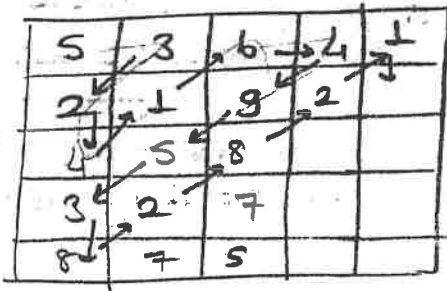 5 3 6 4 1
2 1 9 2
4 5 8
3 2 7
8 7 5